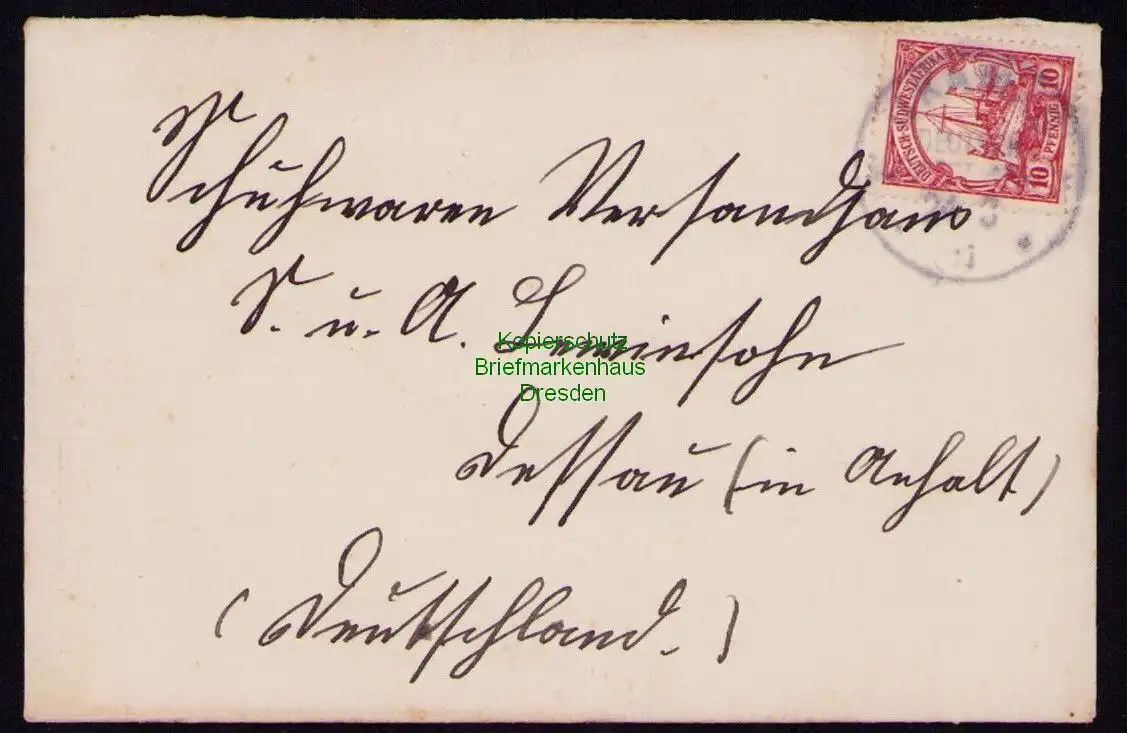 DEUTSCH-SÜDWESTAFRIKA
10 PFENNIG 10
Schuhwaren Versandhaus
S. u. A. Lewinsohn
Kopierschutz
Briefmarkenhaus
Dresden
Dessau (in Anhalt)
(Deutschland.)